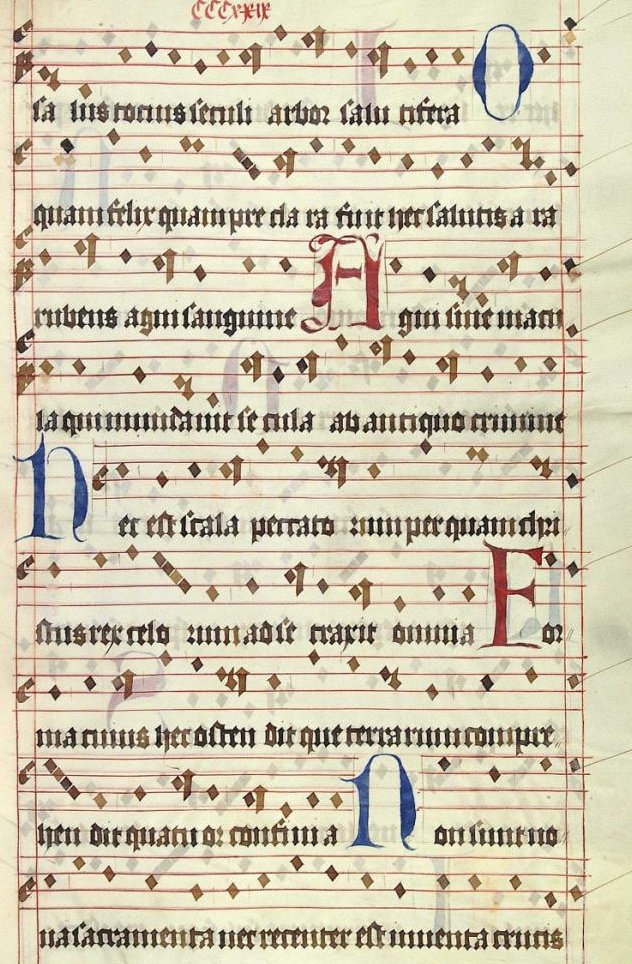 CCCxxix
sa lus tocius seculi arbor salu tifera O
quam felix quam pre cla ra fuit hec salutis a ra
rubens agni sanguine A gni sine macu
la qui mundauit se cula ab antiquo crimine
H ec est scala peccato rum per quam chri
stus rex celo rum ad se traxit omnia F or
ma cuius hec osten dit que terrarum compre
hen dit quatu or confini a N on sunt no
ua sacramenta nec recenter est inuenta crucis